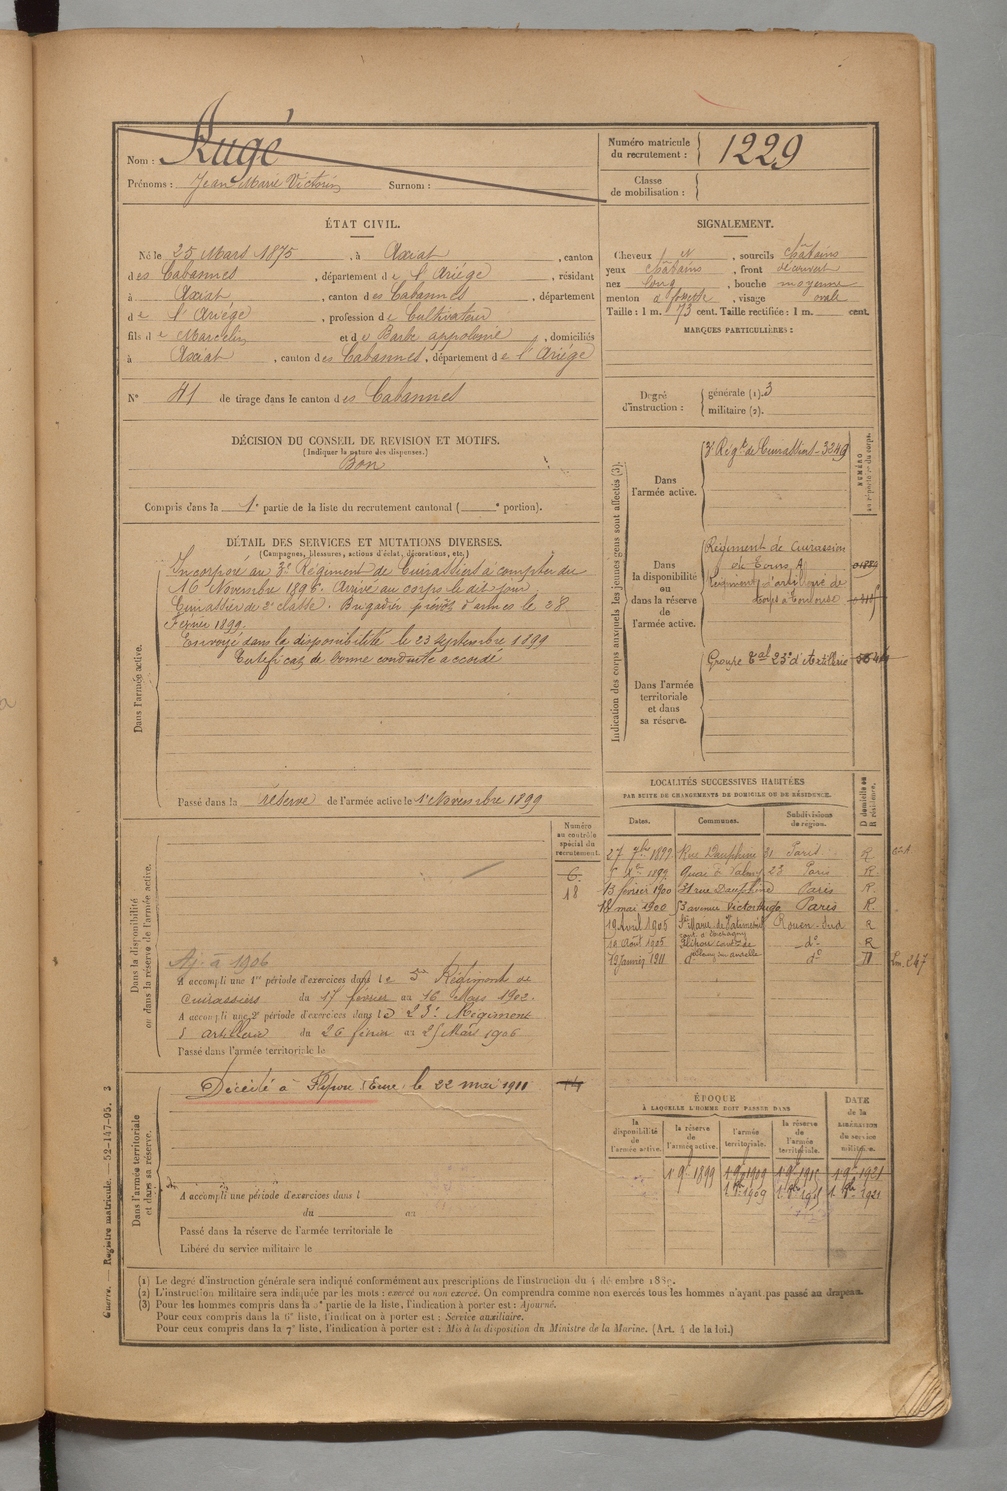 Nom : Rugé
Prénoms : Jean Marie Victorin Surnom :
Numéro matricule du recrutement : 1229
Classe de mobilisation :
ÉTAT CIVIL.
Né le 25 Mars 1875, à Axiat, canton
des Cabannes, département de l'Ariége, résidant
à Axiat, canton des Cabannes, département
de l'Ariége, profession de Cultivateur
fils de Marcelin et de Barbe appolonie, domiciliés
à Axiat, canton des Cabannes, département de l'Ariége
N° 41 de tirage dans le canton des Cabannes
SIGNALEMENT.
Cheveux N, sourcils châtains
yeux châtains, front découvert
nez long, bouche moyenne
menton à fossette, visage ovale
Taille : 1 m. 73 cent. Taille rectifiée : 1 m. cent.
MARQUES PARTICULIÈRES :
Degré d'instruction : générale (1). 3
militaire (2).
DÉCISION DU CONSEIL DE REVISION ET MOTIFS.
(Indiquer la nature des dispenses.)
Bon
Compris dans la 1e partie de la liste du recrutement cantonal ( e portion).
DÉTAIL DES SERVICES ET MUTATIONS DIVERSES.
(Campagnes, blessures, actions d'éclat, décorations, etc.)
Dans l'armée active.
Incorporé au 3e Régiment de Cuirassiers à compter du
16 Novembre 1896. Arrivé au corps le dit jour
Cuirassier de 2e classe. Brigadier prévôt d'armes le 28
Février 1899.
Envoyé dans la disponibilité le 23 septembre 1899
Certificat de bonne conduite accordé
Passé dans la réserve de l'armée active le 1er Novembre 1899
Indication des corps auxquels les jeunes gens sont affectés (3).
NUMÉRO au répertoire du corps.
Dans l'armée active.
3e Régt de Cuirassiers - 3349
Dans la disponibilité ou dans la réserve de l'armée active.
Régiment de Cuirassiers
de Tours A
Régiment d'artillerie de
Corps à Toulouse
Dans l'armée territoriale et dans sa réserve.
Groupe tal 23e d'Artillerie
LOCALITÉS SUCCESSIVES HABITÉES
PAR SUITE DE CHANGEMENTS DE DOMICILE OU DE RÉSIDENCE.
Dates. Communes. Subdivisions de région. D domicile ou R résidence.
27 7bre 1899 Rue Dauphine 31 Paris R
5 Xbre 1899 Quai de Valmy 23 Paris R.
13 février 1900 31 rue Dauphine Paris R.
18 mai 1900 53 avenue Victor Hugo Paris R.
19 Avril 1905 Rouen-Sud R
19 Août 1905 do R
19 Janvier 1911 do D
Numéro au contrôle spécial du recrutement.
6.
18
Dans la disponibilité ou dans la réserve de l'armée active.
Aj. à 1906
A accompli une 1re période d'exercices dans le 5e Régiment de
cuirassiers du 17 février au 16 Mars 1902.
A accompli une 2e période d'exercices dans le 23e Régiment
d'artillerie du 26 février au 25 Mars 1906
Passé dans l'armée territoriale le
Dans l'armée territoriale et dans sa réserve.
Décédé à Flipou (Eure) le 22 mai 1911
A accompli une période d'exercices dans l
du au
Passé dans la réserve de l'armée territoriale le
Libéré du service militaire le
ÉPOQUE
À LAQUELLE L'HOMME DOIT PASSER DANS
DATE de la LIBÉRATION du service militaire.
la disponibilité de l'armée active. la réserve de l'armée active. l'armée territoriale. la réserve de l'armée territoriale.
1 9bre 1899 1 9bre 1909 1 9bre 1915 1 9bre 1921
1 8bre 1909 1 8bre 1915 1 8bre 1921
(1) Le degré d'instruction générale sera indiqué conformément aux prescriptions de l'instruction du 4 décembre 1889.
(2) L'instruction militaire sera indiquée par les mots : exercé ou non exercé. On comprendra comme non exercés tous les hommes n'ayant pas passé au drapeau.
(3) Pour les hommes compris dans la 2e partie de la liste, l'indication à porter est : Ajourné.
Pour ceux compris dans la 6e liste, l'indication à porter est : Service auxiliaire.
Pour ceux compris dans la 7e liste, l'indication à porter est : Mis à la disposition du Ministre de la Marine. (Art. 4 de la loi.)
Guerre. — Registre matricule. — 52-147-95. 3